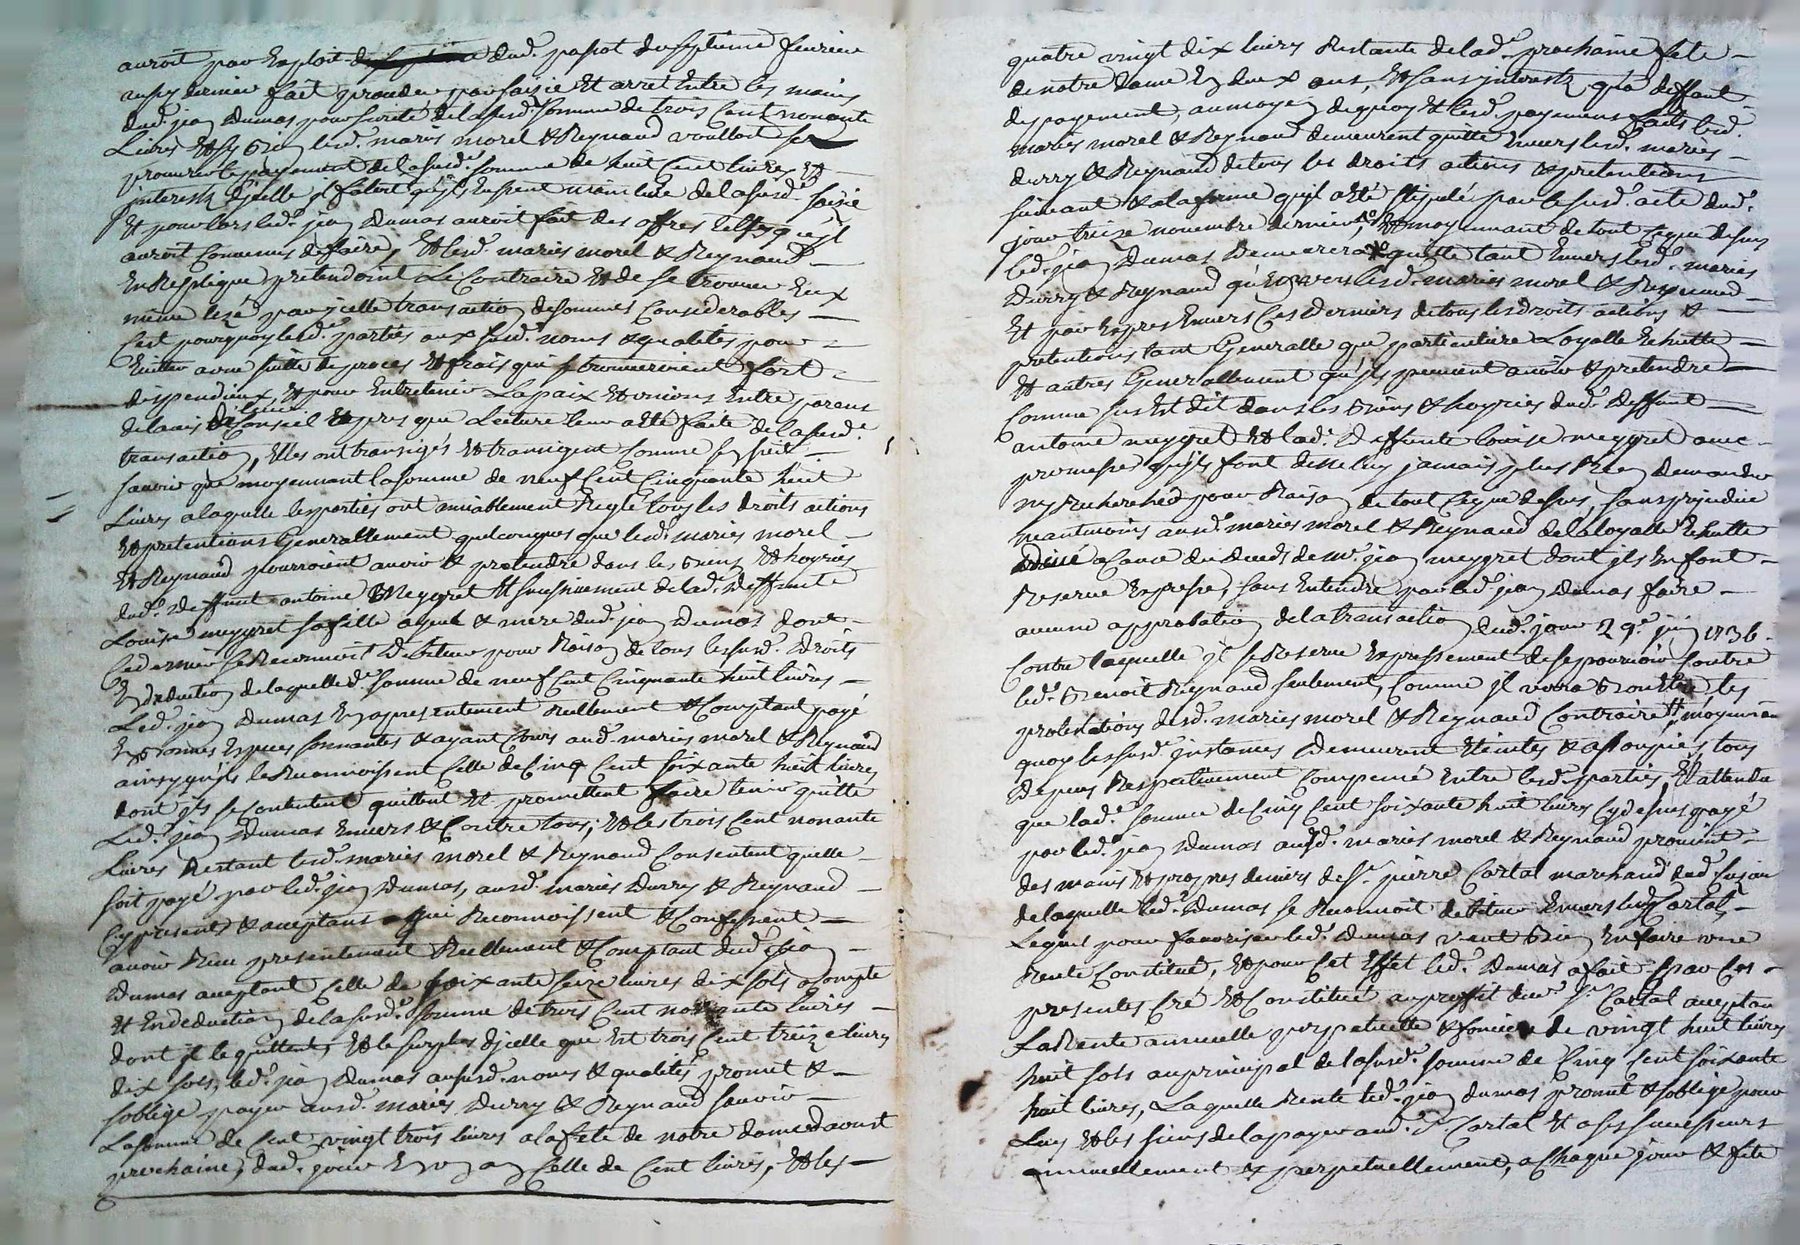 auroit par Exploit dud. passot du septieme feurier
aussy dernier fait proceder par saisie Et arret Entre les mains
dud. jean Dumas pour sureté de lasusd. somme de trois Cent nonante
Livres Et sy bien lesd. mariés morel & Reynaud voulloit se
procurer le payement de lasusd. somme de huit Cent livres Et
interestz d'jcelle jl faloit qu'jls Eussent main levée de lasusd. saisie
Et pour lors led. jean Dumas auroit fait des offres telles qu'jl
auroit Convenus de faire, Et lesd. mariés morel & Reynaud
En Replique pretendoint Le Contraire Et de se trouver Eux
meme lezé par jcelle transaction de sommes Considerables
Cest pourquoy lesd. parties aux susd. noms & qualités pour
Eviter a une suitte de proces Et frais qui se trouveroient fort
dispendieux, Et pour Entretenir La paix Et unions Entre parens
de lauis de Conseil Et apres que Lecture leur a Eté faite de lasusd.
transaction, Elles ont transigés Et transigent Comme sensuit
Sauoir que moyennant la somme de neuf Cent Cinquante huit
Livres a laquelle les parties ont amiablement Reglé tous les droits actions
Et pretentions Generallement quelconques que lesd. mariés morel
Et Reynaud pourroient auoir & pretendre dans les biens Et hoyries
dud. Deffunt antoine Meygret Et de lad. Deffunte
Louise meygret sa fille ayeule & mere dud. jean Dumas dont
Ce dernier se Reconnoit Debiteur pour Raison de tous les susd. Droits
En deduction de laquelle d. somme de neuf Cent Cinquante huit livres
Led. jean Dumas En a presentement Reellement & Comptant payé
En bonnes Especes sonnantes & ayant Cours aud. mariés morel & Reynaud
ainsy qu'jls le Reconnoissent Celle de Cinq Cent soixante huit livres
dont jls se Contentent quittent Et promettent faire tenir quitte
Led. jean Dumas Envers & Contre tous, Et les trois Cent nonante
Livres Restant lesd. mariés morel & Reynaud Consentent quelle
soit payé par led. jean Dumas, ausd. mariés Durry & Reynaud
Cy presents & aceptans qui Reconnoissent & Confessent
auoir Reçu presentement Reellement & Comptant dud. jean
Dumas aceptant Celle de soixante seize livres dix sols a Compte
Et En deduction de lasusd. somme de trois Cent nonante livres
dont jl le quittent, Et le surplus d'jcelle que Est trois Cent treize livres
dix sols, led. jean Dumas aususd. noms & qualités promet &
s'oblige payer ausd. mariés Durry & Reynaud sauoir
La somme de Cent vingt trois livres a la fete de notre dame daoust
prochaine, dud. jour En un an Celle de Cent livres, Et les
quatre vingt dix livres Restante de lad. prochaine fete
de notre dame En deux ans, Et sans interestz qu'a deffaut
de payement, au moyen de quoy Et lesd. payemens faits lesd.
mariés morel & Reynaud demeurent quitte Envers lesd. mariés
durry & Reynaud de tous les droits actions & pretentions
suivant & a la forme qu'jl a Eté stipulés par le susd. acte dud.
jour treize novembre dernier, Et moyennant de tout Ce que dessus
led. jean Dumas Demeurera quitte tant Envers lesd. mariés
Durry & Reynaud qu'Envers lesd. mariés morel & Reynaud
Et par Expres Envers Ces Derniers de tous les droits actions &
pretentions tant Generalle que particuliere Loyalle Echutte
Et autres Generallement qu'jls peuvent auoir & pretendre
Comme sus Est dit dans les biens & hoyries dud. Deffunt
antoine meygret Et lad. Deffunte louise meygret avec
promesse qu'jls font de ne luy jamais plus Rien demander
ny Rechercher pour Raison de tout Ce que dessus, sans prejudice
neantmoins ausd. mariés morel & Reynaud de la loyalle Echutte
a Cause du Deces de Mr. jean meygret dont jls En font
Reserve Expresse, sans Entendre par led. jean Dumas faire
aucune approbation de la transaction dud. jour 29e. juin 1736.
Contre laquelle jl se Reserve Expressement de se pourvoir Contre
led. Benoit Reynaud seulement, Comme jl verra les
protestations desd. mariés morel & Reynaud Contraire, Et moyennan
quoy les susd. jnstances Demeurent Eteintes & assoupies, tous
Depens Respectivement Compensé Entre lesd. parties, Et attendu
que lad. somme de Cinq Cent soixante huit livres Cy dessus payé
par led. jean Dumas ausd. mariés morel & Reynaud provient
des mains Et propres deniers de Sr. pierre Cartal marchand
de laquelle led. Dumas se Reconnoit debiteur Envers luy Cartal
Lequel pour favoriser led. Dumas veut bien En faire une
Rente Constitué, Et pour Cet Effet led. Dumas a fait par Ces
presentes Créé Et Constitué au proffit dud. Sr. Cartal aceptan
La Rente annuelle perpetuelle & fonciere de vingt huit livres
huit sols au principal de lasusd. somme de Cinq Cent soixante
huit livres, Laquelle Rente led. jean dumas promet & s'oblige pour
Luy Et les siens de la payer aud. Sr. Cartal Et a ses successeurs
annuellement & perpetuellement, a Chaque jour & fete